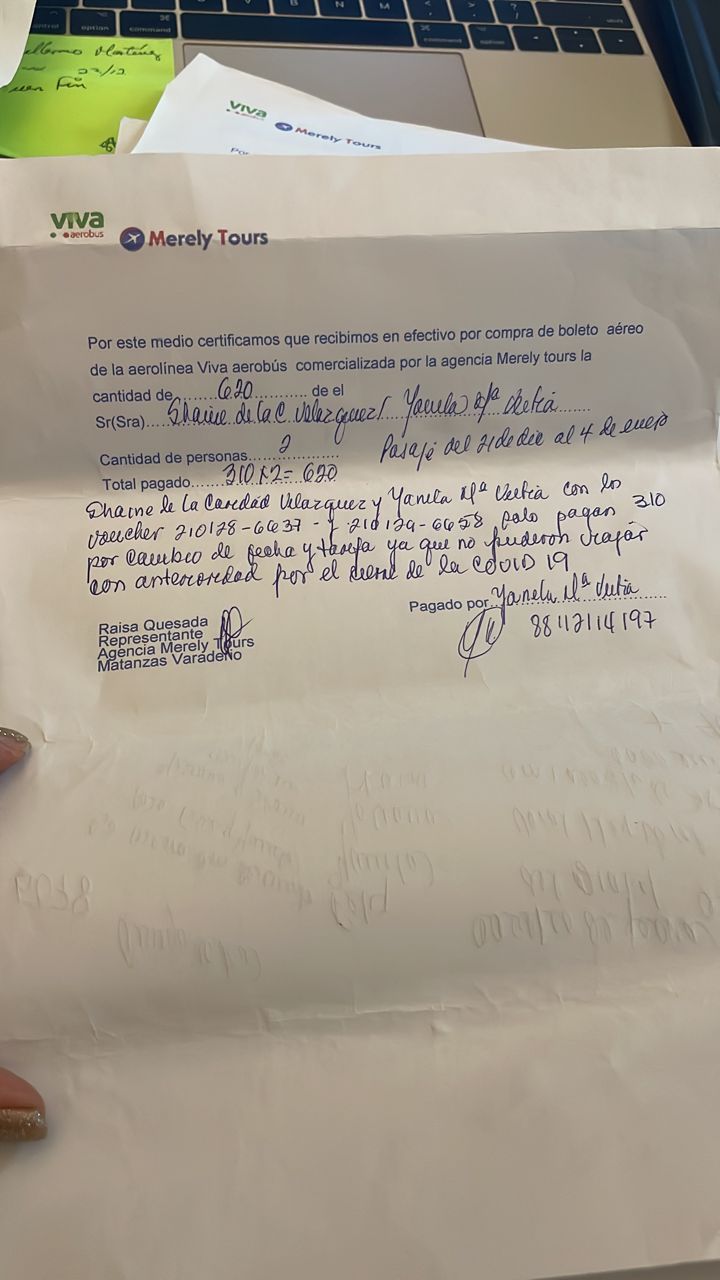 control option command
B N M < > ?
⌘ command option
22/12
Fin
viva
Merely Tours
viva
aerobus Merely Tours
Por este medio certificamos que recibimos en efectivo por compra de boleto aéreo
de la aerolínea Viva aerobús comercializada por la agencia Merely tours la
cantidad de........620............. de el
Sr(Sra).... de la C Velazquez/ Yanela Mª
Cantidad de personas.......2...............
Pasaje del 21 de dic al 4 de enero
Total pagado.......310 x 2 = 620
de la Caridad Velazquez y Yanela Mª con los
voucher 210128-6637 - y 210129-6658 solo pagan 310
por cambio de fecha y tarifa ya que no pudieron viajar
con anterioridad por el de la COVID 19
Pagado por Yanela Mª
88112114197
Raisa Quesada
Representante
Agencia Merely Tours
Matanzas Varadero